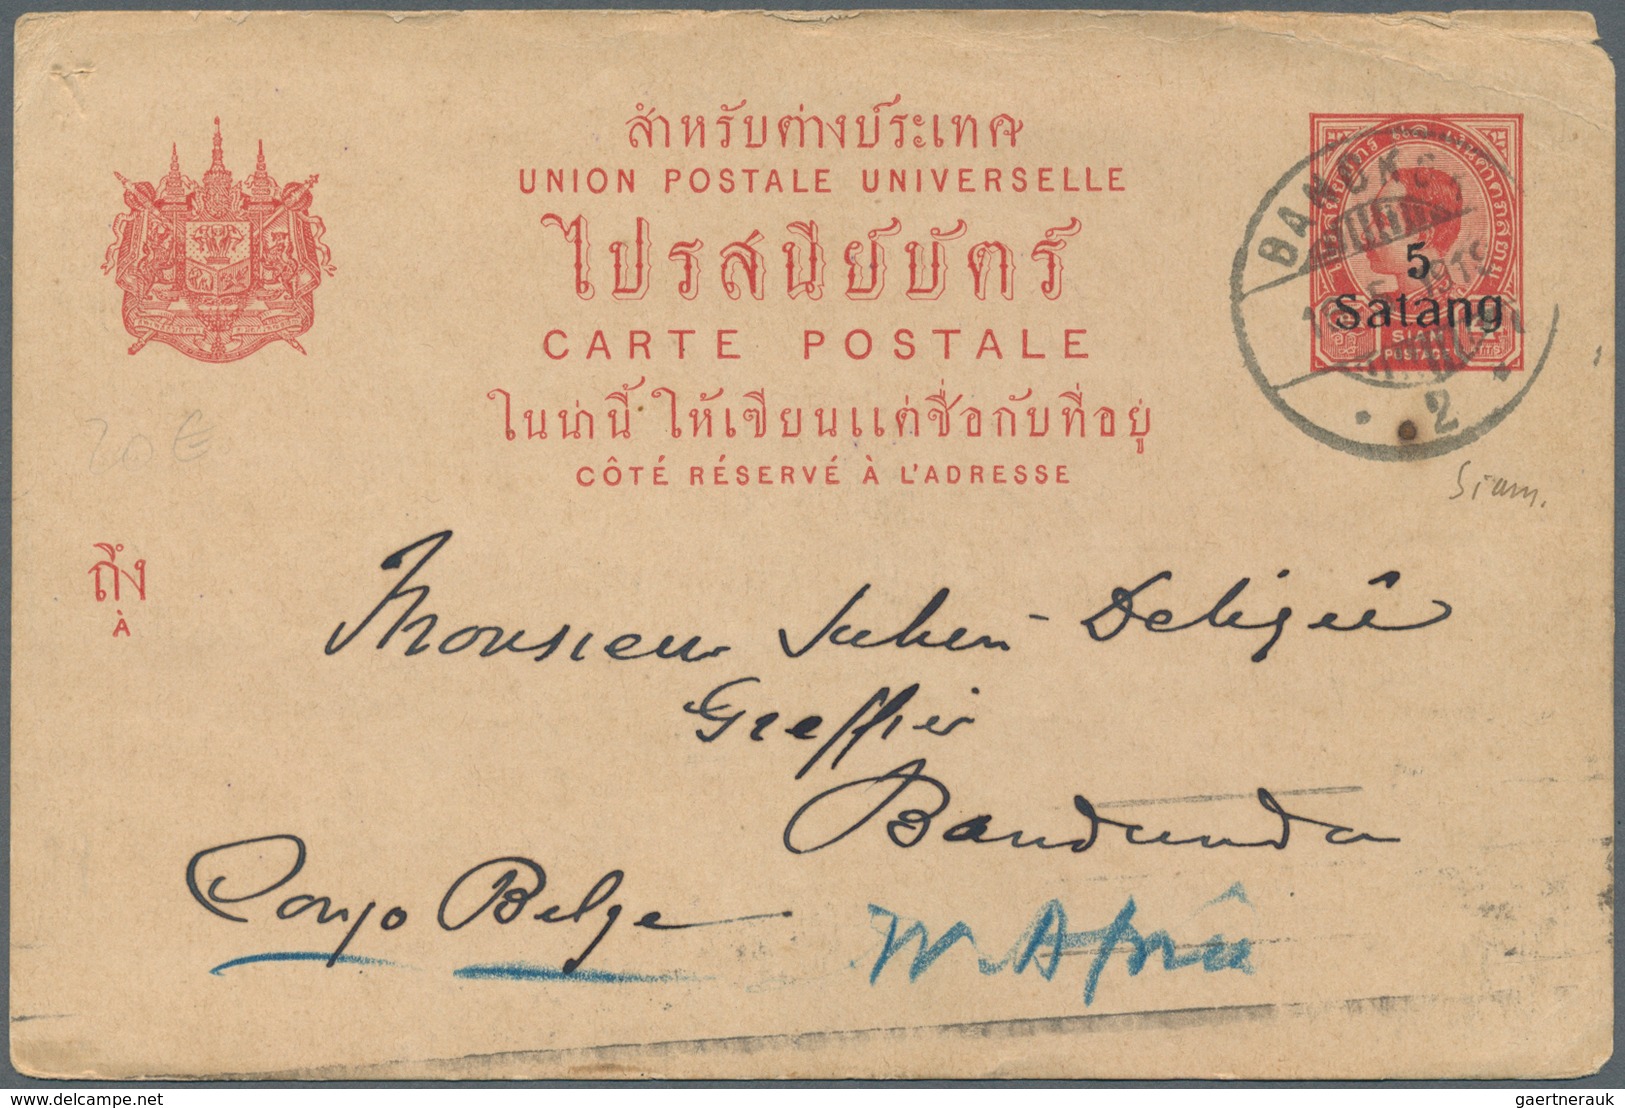 สำหรับต่างประเทศ
UNION POSTALE UNIVERSELLE
ไปรสนียบัตร์
CARTE POSTALE
ในน่านี้ ให้เขียนแต่ชื่อกับที่อยู่
CÔTÉ RÉSERVÉ À L'ADRESSE
BANGKOK
2
5
Satang
SIAM
POSTAGE
ATTS
20€
Siam.
ถึง
À
Monsieur Julien Deligée
Greffier
Bandunda
Congo Belge
W. Africa
delcampe.net
gaertnerauk